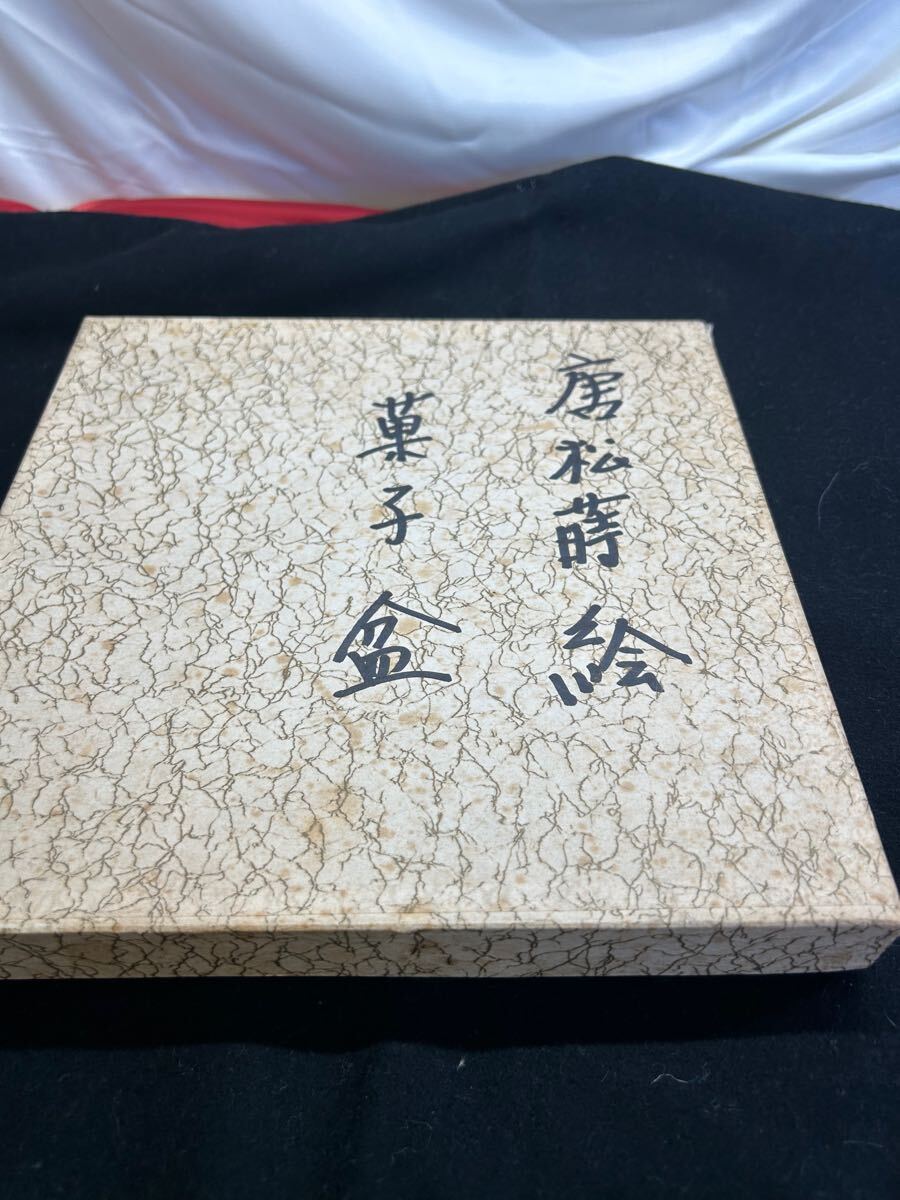 唐松蒔絵
菓子盆